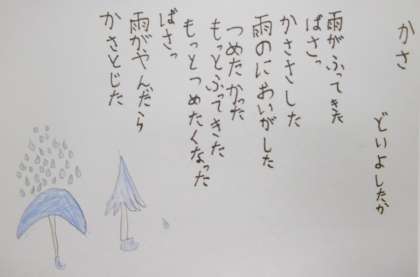 かさ
どいよしたか
雨がふってきた
ばさっ
かささした
雨のにおいがした
つめたかった
もっとふってきた
もっとつめたくなった
ばさっ
雨がやんだら
かさとじた